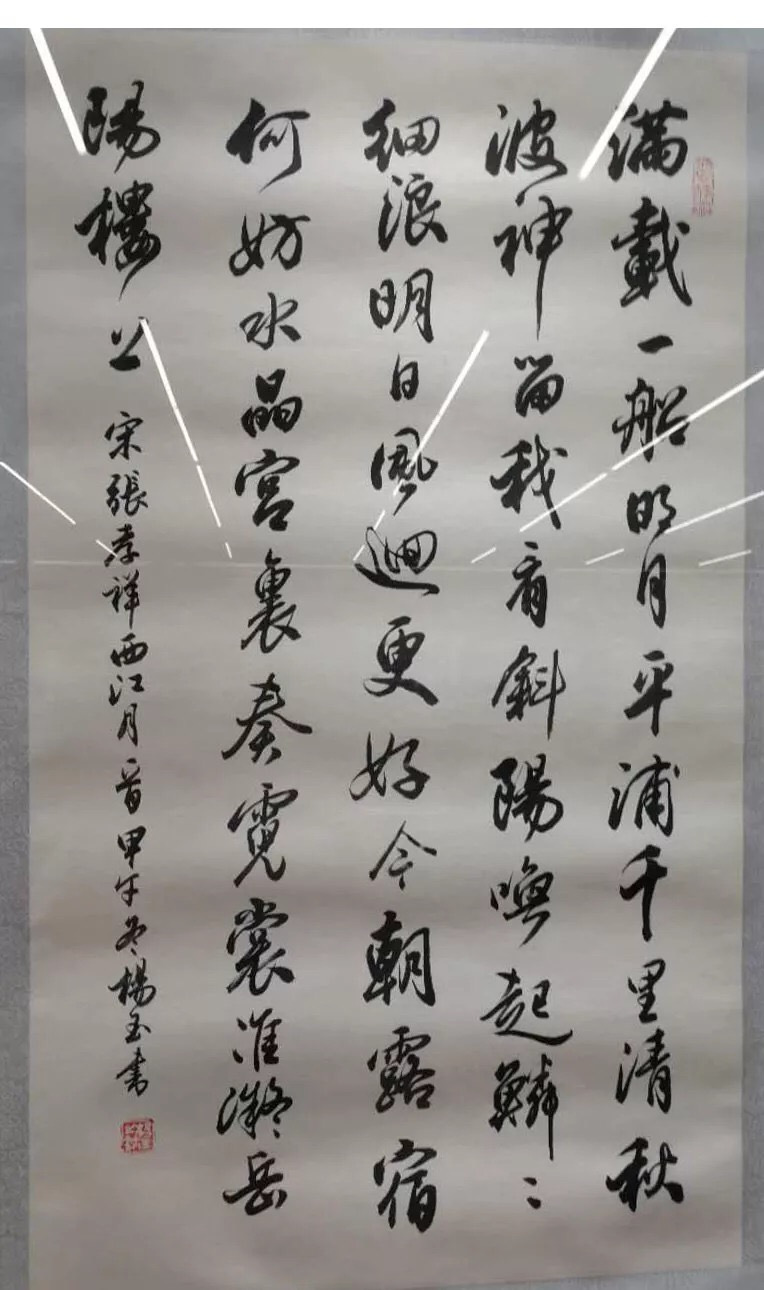 滿載一船明月平浦千里清秋
波神留我看斜陽喚起鱗々
細浪明日風迴更好今朝露宿
何妨水晶宮裏奏霓裳准凝岳
陽樓上 宋張孝祥西江月一首 甲午冬楊玉書